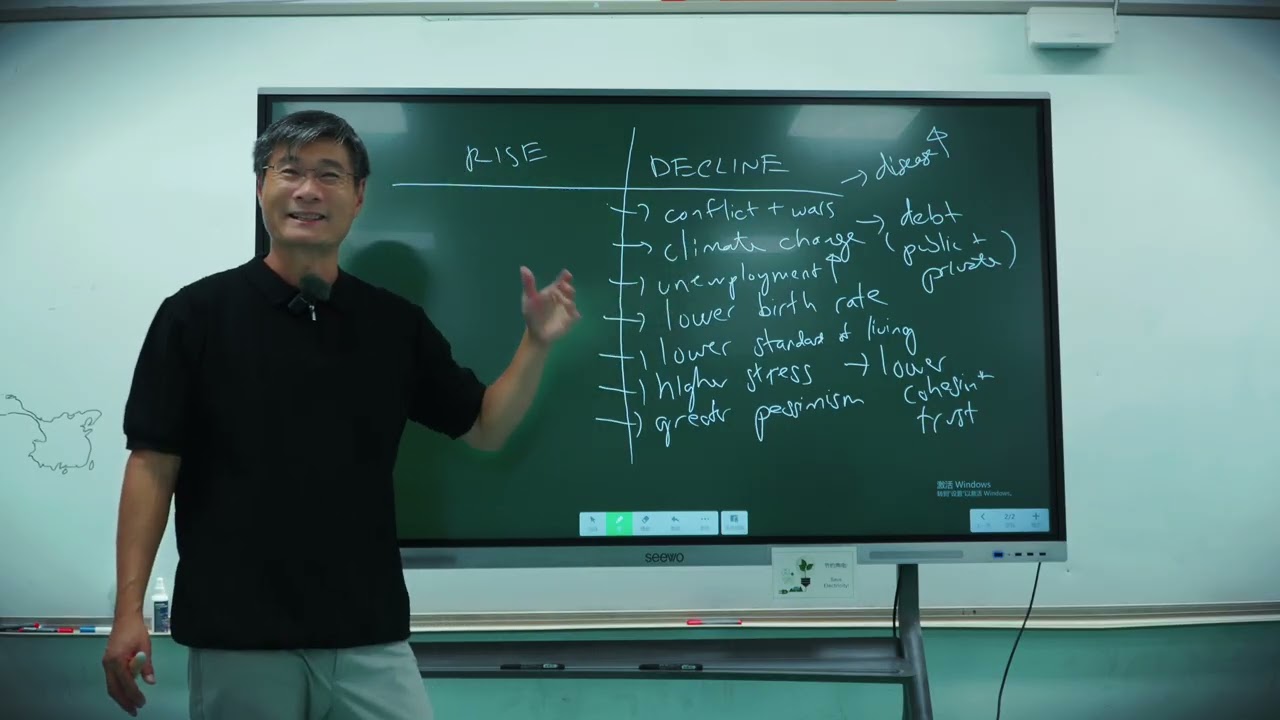 RISE
DECLINE
→ disease ↑
→ conflict + wars
→ debt
→ climate change
(public +
private)
→ unemployment ↑
→ lower birth rate
→ lower standard of living
→ higher stress
→ lower
cohesion +
trust
→ greater pessimism
激活 Windows
转到"设置"以激活 Windows。
2/2
seewo
Save
Electricity